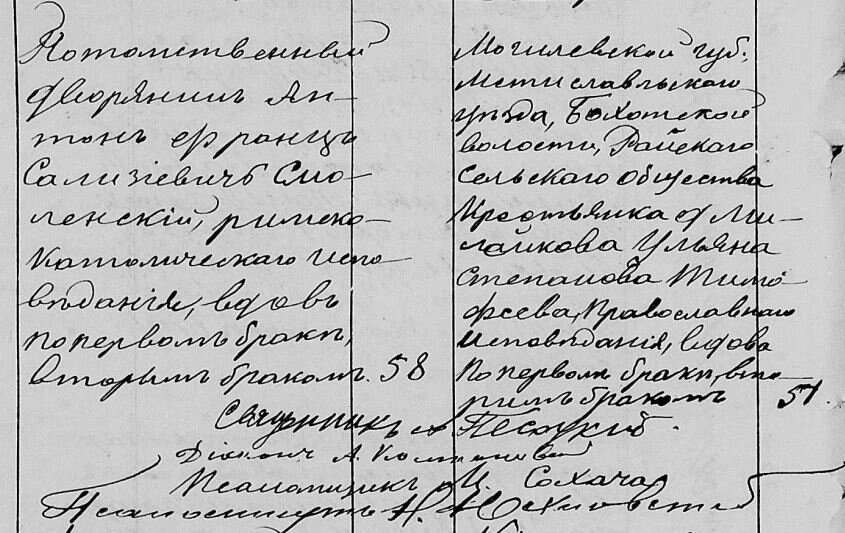 Потомственный
дворянинъ Ан-
тонъ Францъ
Сализіевичъ Смо-
ленскій, римско-
католическаго испо-
вѣданія, вдовъ
по первомъ бракѣ,
вторымъ бракомъ. 58
Могилевской губ.,
Мстиславльскаго
уѣзда, Бохотской
волости, Райскаго
сельскаго общества
крестьянка д. Ми-
лейкова Ульяна
Степанова Тимо-
феева, православнаго
исповѣданія, вдова
по первомъ бракѣ, вто-
рымъ бракомъ 51.
Священникъ
Діаконъ А.
Псаломщикъ Сохача
Псаломщикъ Н.